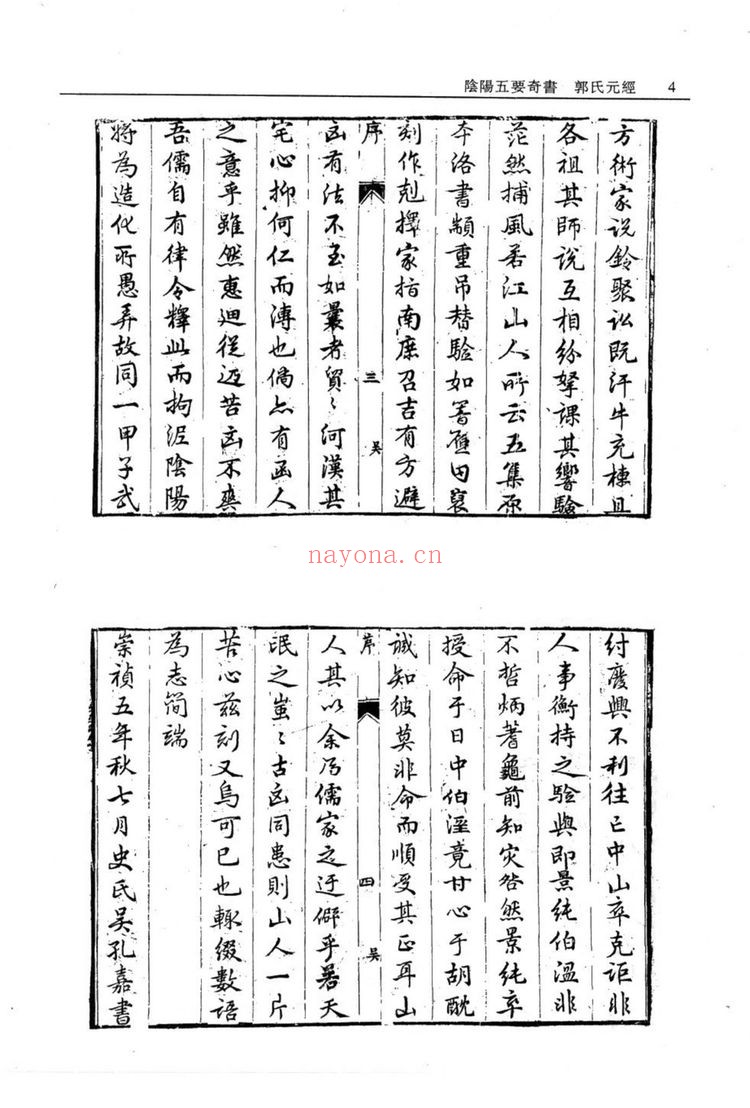 陰陽五要奇書　郭氏元經　4
方術家說鈴聚訟既汗牛充棟且
各祖其師說互相紛拏課其響驗
茫然捕風若江山人所云五集原
本洛書顓重吊替驗如蓍雁因裒
刻作剋擇家指南庶召吉有方避
序
三
吳
凶有法不至如曩者貿〻何漢其
宅心抑何仁而溥也倘亦有函人
之意乎雖然惠迪從逆吉凶不爽
吾儒自有律令釋此而拘泥陰陽
將為造化所愚弄故同一甲子武
nayona.cn
紂廢興不利往亡中山卒克詎非
人事衡持之驗與即景純伯溫非
不哲炳蓍龜前知灾咎然景純卒
授命于日中伯溫竟甘心于胡酖
誠知彼莫非命而順受其正耳山
序
四
吳
人其以余乃儒家之迂僻乎若天
氓之蚩〻吉凶同患則山人一片
苦心茲刻又烏可已也輒綴數語
為志簡端
崇禎五年秋七月史氏吳孔嘉書